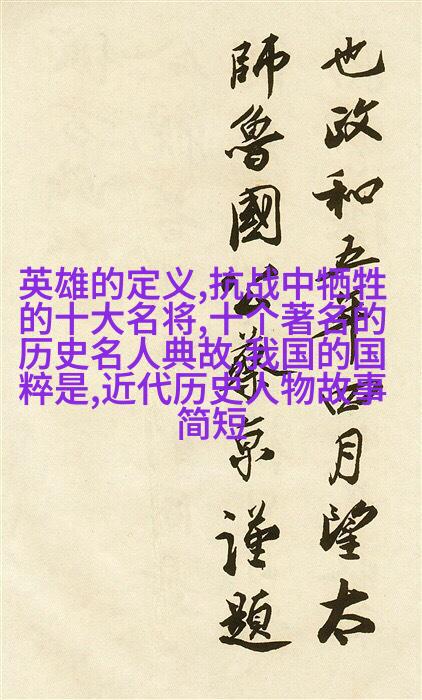 也政和五年四月望太
師魯國公蔡京謹題
英雄的定义,抗战中牺牲
的十大名将,十个著名的
历史名人典故,我国的国
粹是,近代历史人物故事
简短